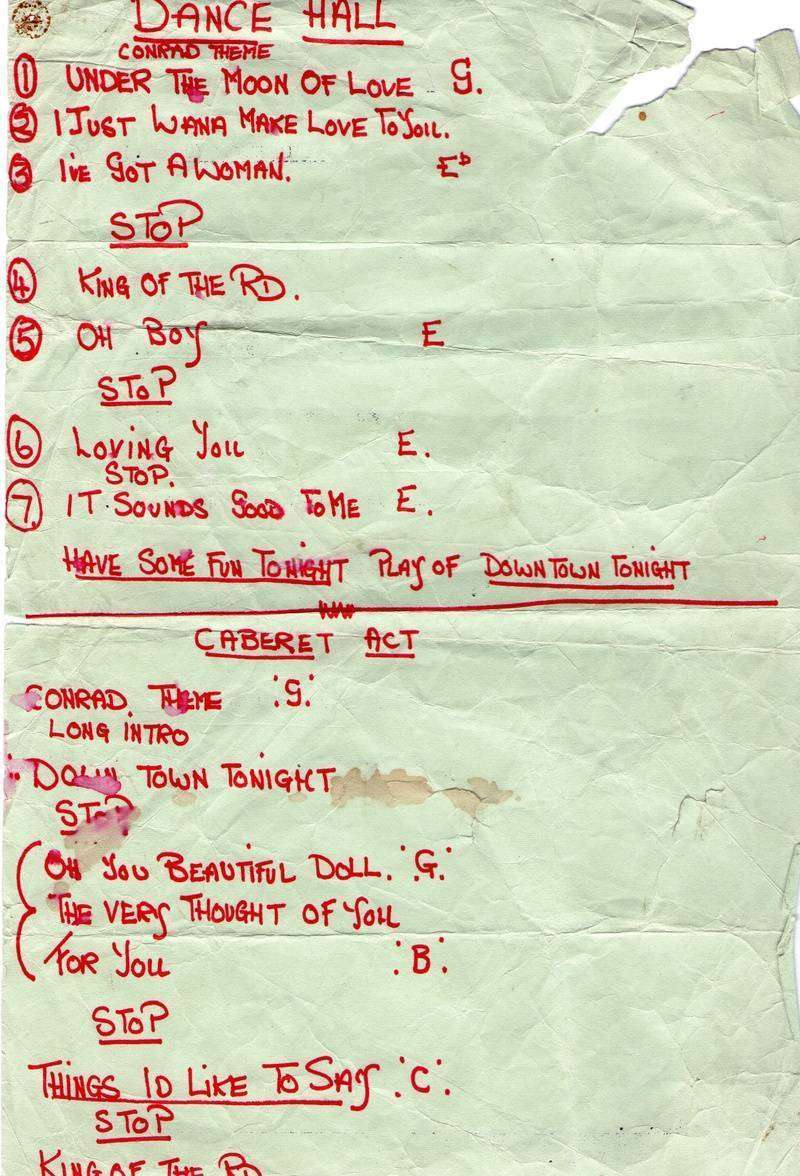 DANCE HALL
CONRAD THEME
1 UNDER THE MOON OF LOVE G.
2 I JUST WANA MAKE LOVE TO YOU.
3 I'VE GOT A WOMAN. Eb
STOP
4 KING OF THE RD.
5 OH BOY E
STOP
6 LOVING YOU E.
STOP.
7 IT SOUNDS GOOD TO ME E.
HAVE SOME FUN TONIGHT PLAY OF DOWNTOWN TONIGHT
CABERET ACT
CONRAD THEME :G:
LONG INTRO
DOWN TOWN TONIGHT
STOP
OH YOU BEAUTIFUL DOLL. :G:
THE VERY THOUGHT OF YOU
FOR YOU :B:
STOP
THINGS ID LIKE TO SAY :C:
STOP
KING OF THE RD